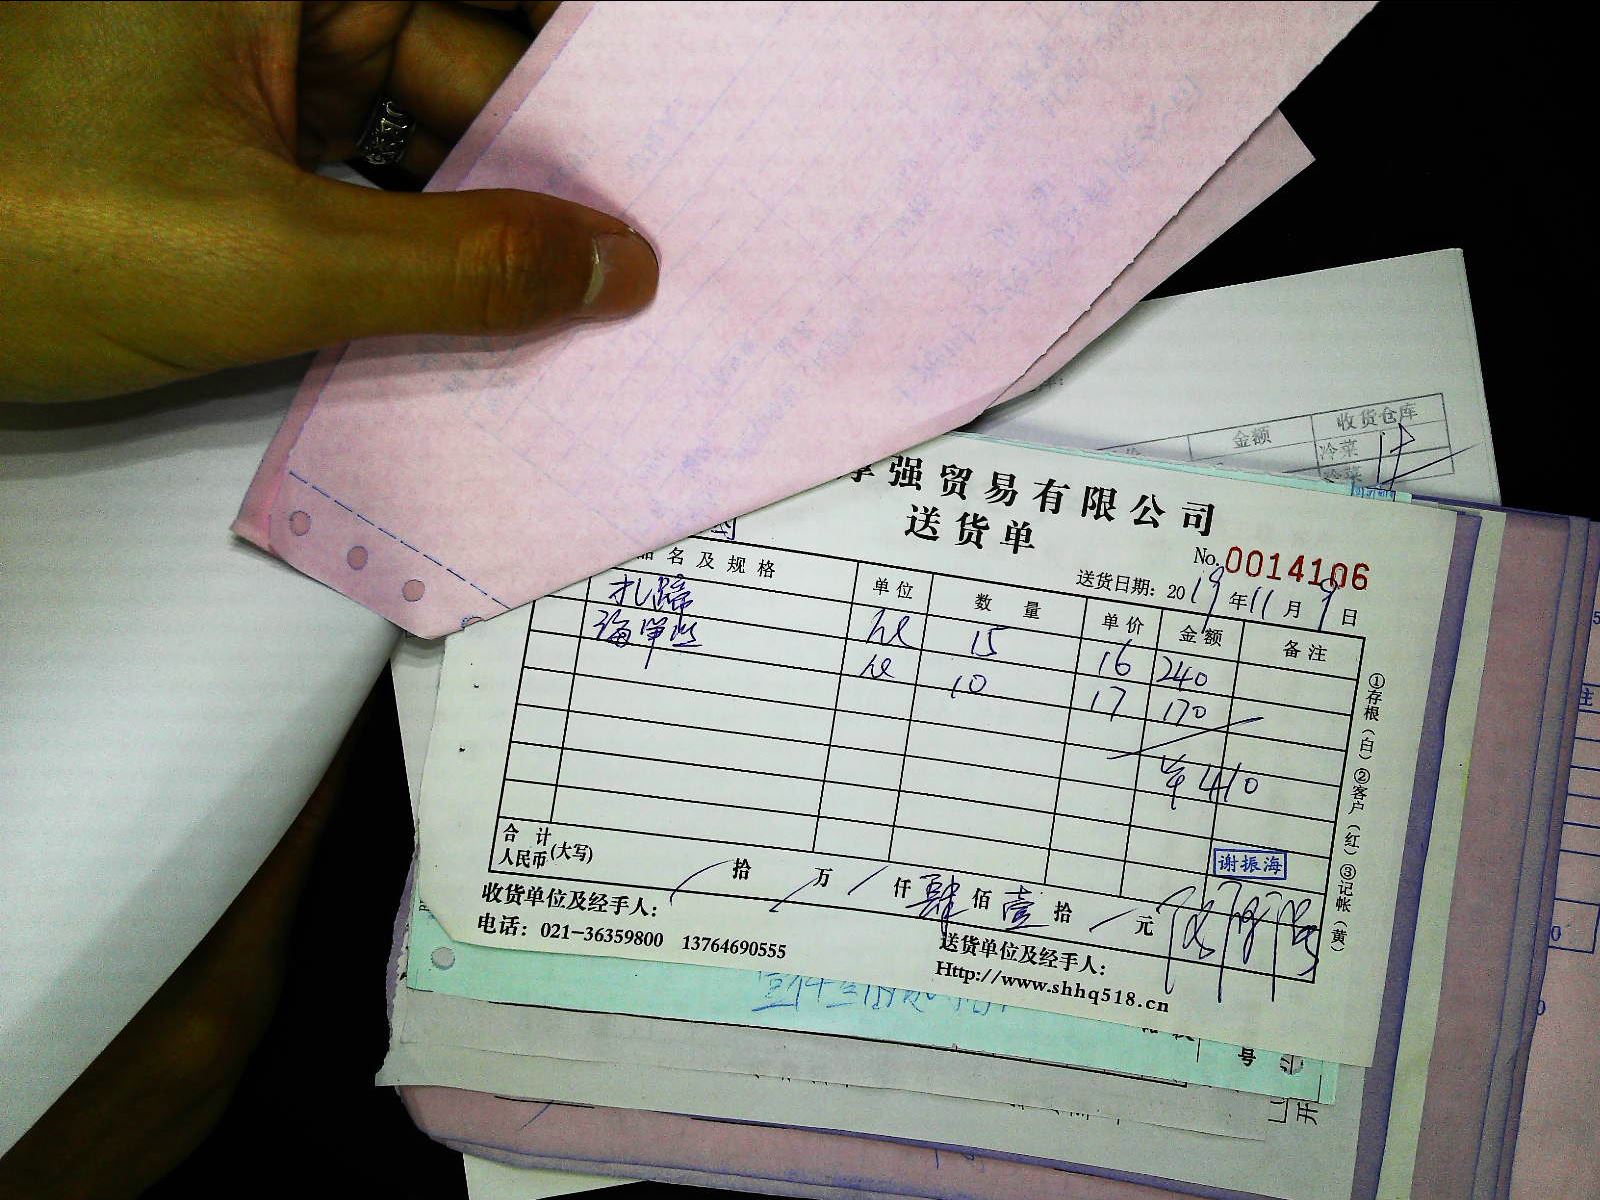 金额 收货仓库
冷菜
强贸易有限公司
送货单
No. 0014106
送货日期: 2019年11月9日
品名及规格 单位 数量 单价 金额 备注
扎蹄 15 16 240
海草丝 10 17 170
¥410
谢振海
合计
人民币(大写) 拾 万 仟 肆佰 壹拾 元
收货单位及经手人:
送货单位及经手人:
电话: 021-36359800 13764690555
Http://www.shhq518.cn
①存根(白)②客户(红)③记帐(黄)
号